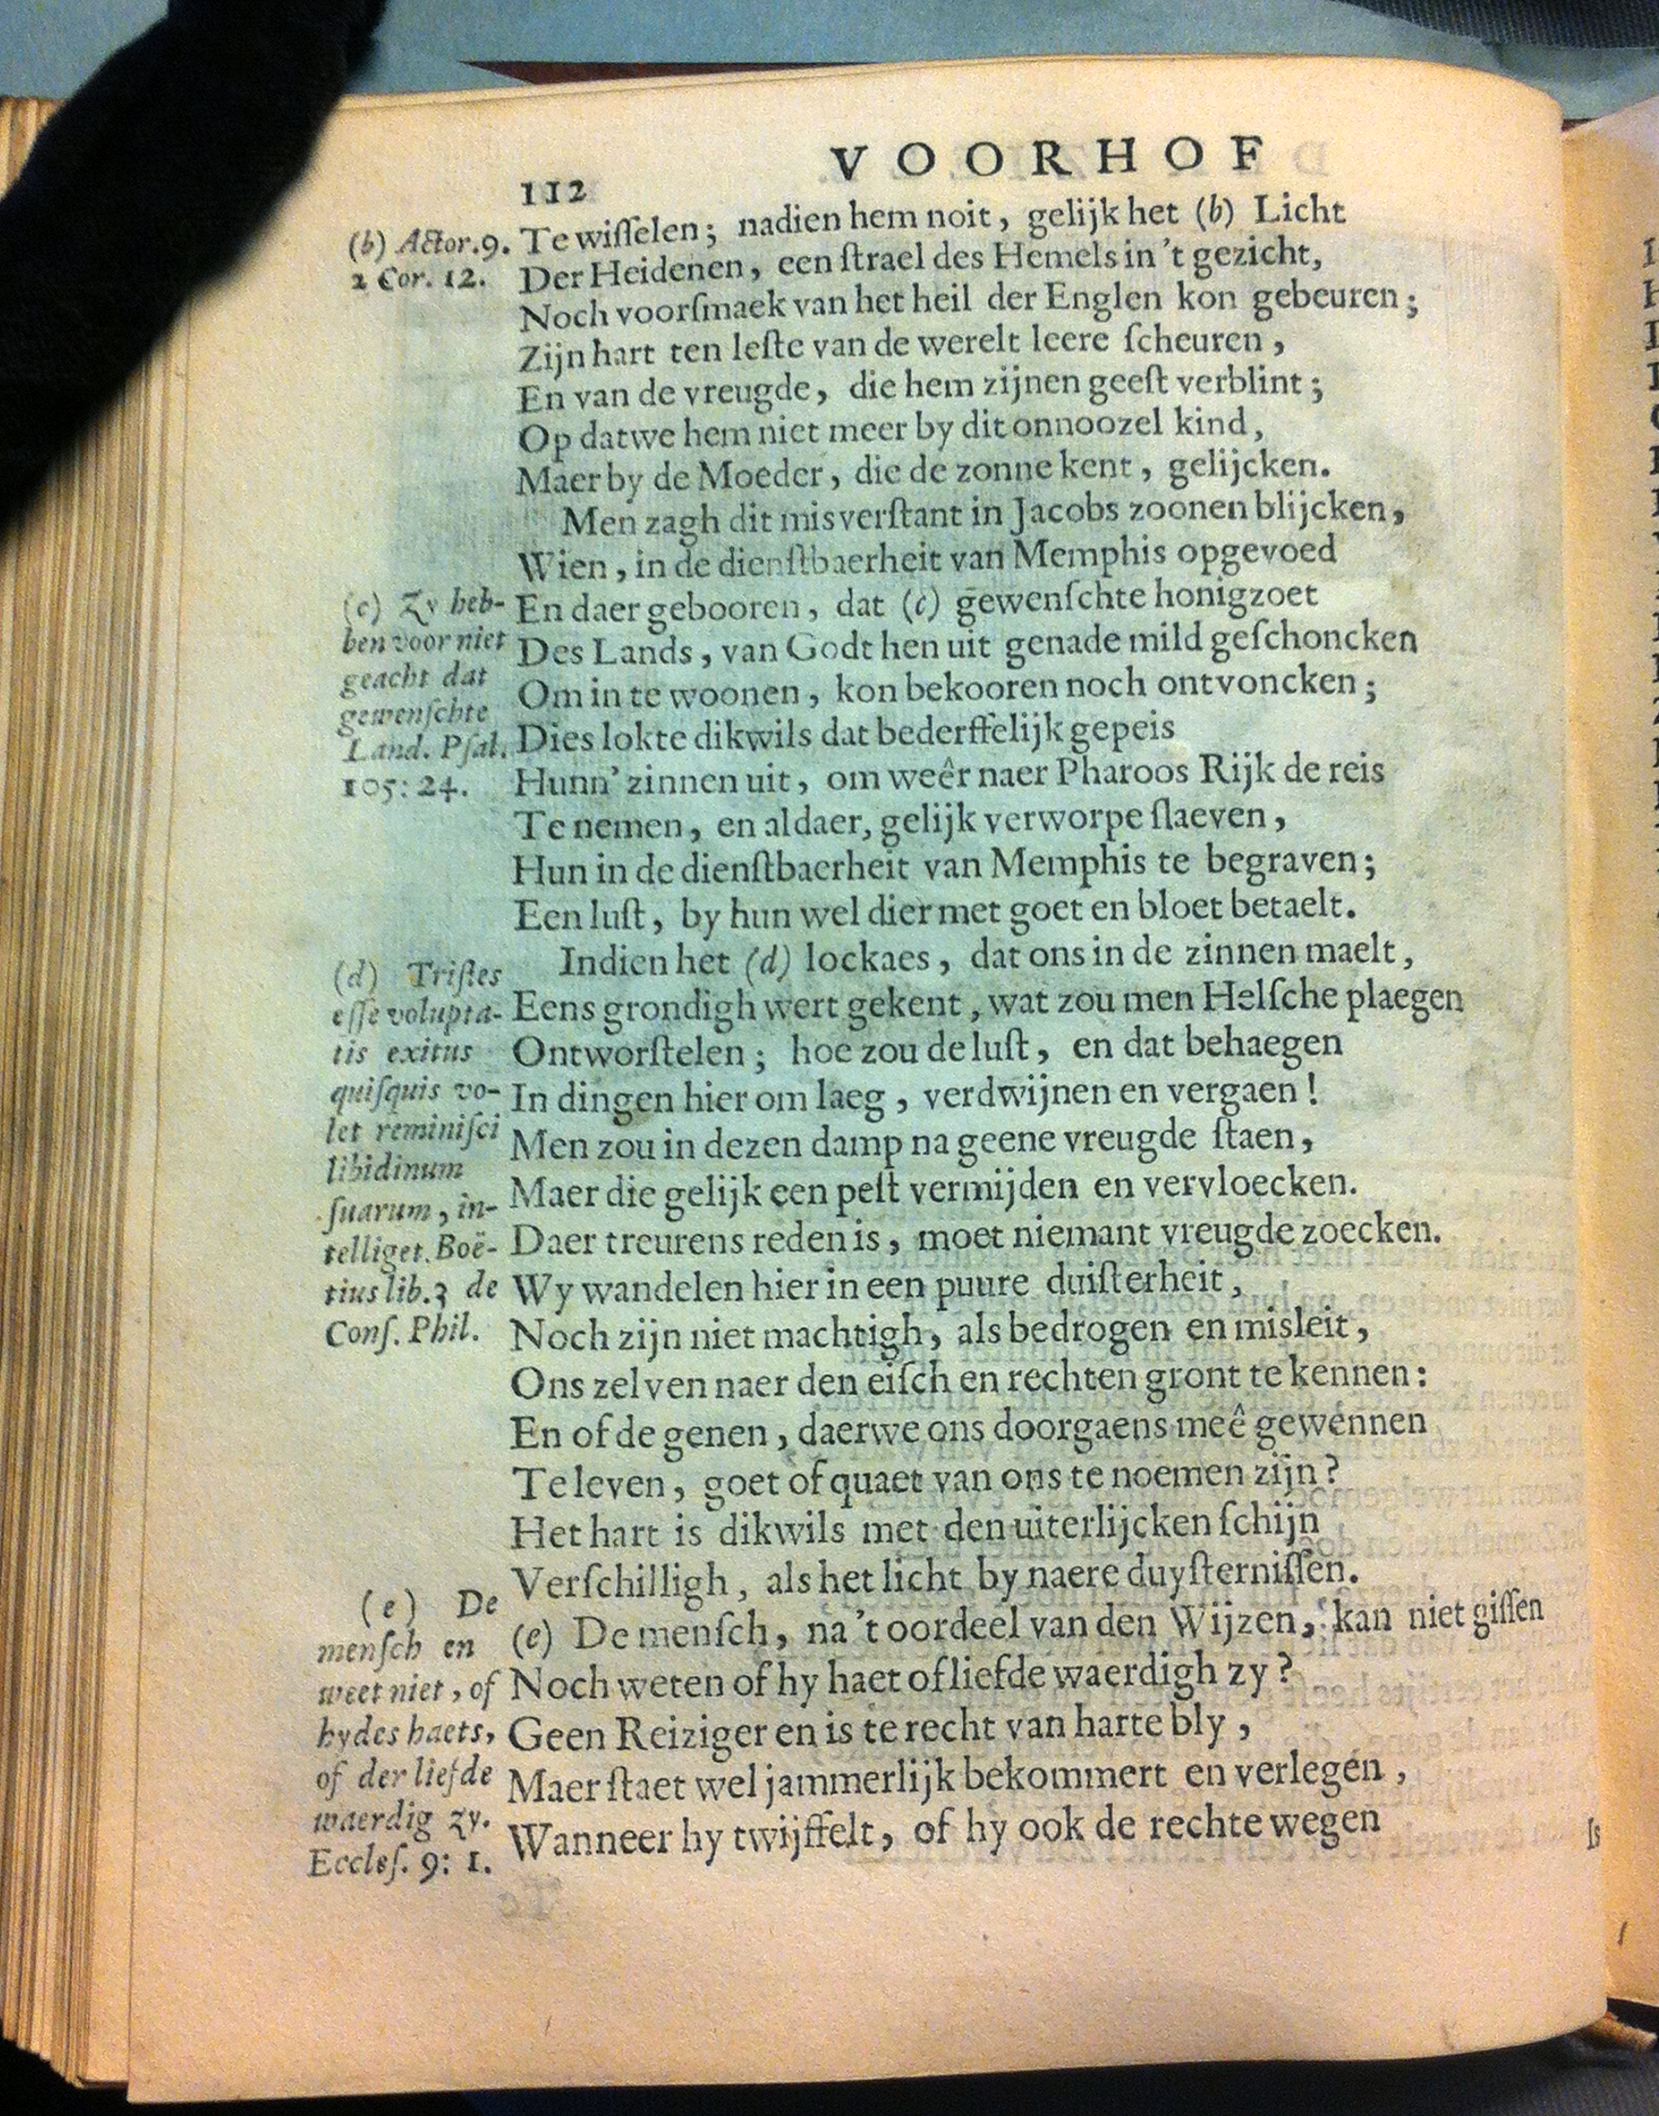 VOORHOF
112
Te wiſſelen; nadien hem noit, gelijk het (b) Licht
Der Heidenen, een ſtrael des Hemels in 't gezicht,
Noch voorſmaek van het heil der Englen kon gebeuren;
Zijn hart ten leſte van de werelt leere ſcheuren,
En van de vreugde, die hem zijnen geeſt verblint;
Op datwe hem niet meer by dit onnoozel kind,
Maer by de Moeder, die de zonne kent, gelijcken.
Men zagh dit misverſtant in Jacobs zoonen blijcken,
Wien, in de dienſtbaerheit van Memphis opgevoed
En daer gebooren, dat (c) gewenſchte honigzoet
Des Lands, van Godt hen uit genade mild geſchoncken
Om in te woonen, kon bekooren noch ontvoncken;
Dies lokte dikwils dat bederffelijk gepeis
Hunn' zinnen uit, om weêr naer Pharoos Rijk de reis
Te nemen, en aldaer, gelijk verworpe ſlaeven,
Hun in de dienſtbaerheit van Memphis te begraven;
Een luſt, by hun wel dier met goet en bloet betaelt.
Indien het (d) lockaes, dat ons in de zinnen maelt,
Eens grondigh wert gekent, wat zou men Helſche plaegen
Ontworſtelen; hoe zou de luſt, en dat behaegen
In dingen hier om laeg, verdwijnen en vergaen!
Men zou in dezen damp na geene vreugde ſtaen,
Maer die gelijk een peſt vermijden en vervloecken.
Daer treurens reden is, moet niemant vreugde zoecken.
Wy wandelen hier in een puure duiſterheit,
Noch zijn niet machtigh, als bedrogen en misleit,
Ons zelven naer den eiſch en rechten gront te kennen:
En of de genen, daerwe ons doorgaens meê gewennen
Te leven, goet of quaet van ons te noemen zijn?
Het hart is dikwils met den uiterlijcken ſchijn
Verſchilligh, als het licht by naere duyſterniſſen.
(e) De menſch, na 't oordeel van den Wijzen, kan niet giſſen
Noch weten of hy haet of liefde waerdigh zy?
Geen Reiziger en is te recht van harte bly,
Maer ſtaet wel jammerlijk bekommert en verlegen,
Wanneer hy twijffelt, of hy ook de rechte wegen
Is
(b) Actor. 9.
2 Cor. 12.
(c) Zy heb-
ben voor niet
geacht dat
gewenſchte
Land. Pſal.
105: 24.
(d) Triſtes
eſſe volupta-
tis exitus
quiſquis vo-
let reminiſci
libidinum
ſuarum, in-
telliget. Boë-
tius lib. 3 de
Conſ. Phil.
(e) De
menſch en
weet niet, of
hy des haets,
of der liefde
waerdig zy.
Eccleſ. 9: 1.